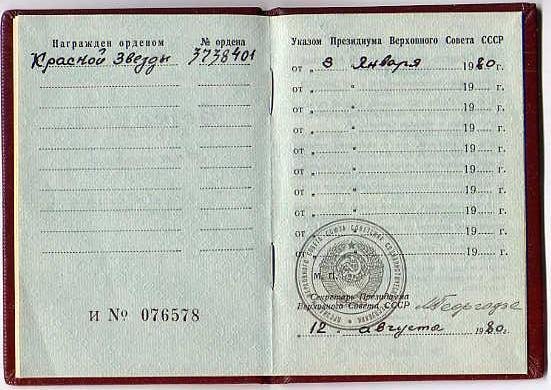 Награжден орденом № ордена
Красной Звезды 3738401
И № 076578
Указом Президиума Верховного Совета СССР
от „ 3 Января 1980 г.
от „ " 19 г.
от „ " 19 г.
от „ " 19 г.
от „ " 19 г.
от „ " 19 г.
от „ " 19 г.
от „ " 19 г.
от „ " 19 г.
от „ " 19 г.
М. П.
Секретарь Президиума
Верховного Совета СССР МГеоргадзе
" 12 " августа 1980 г.